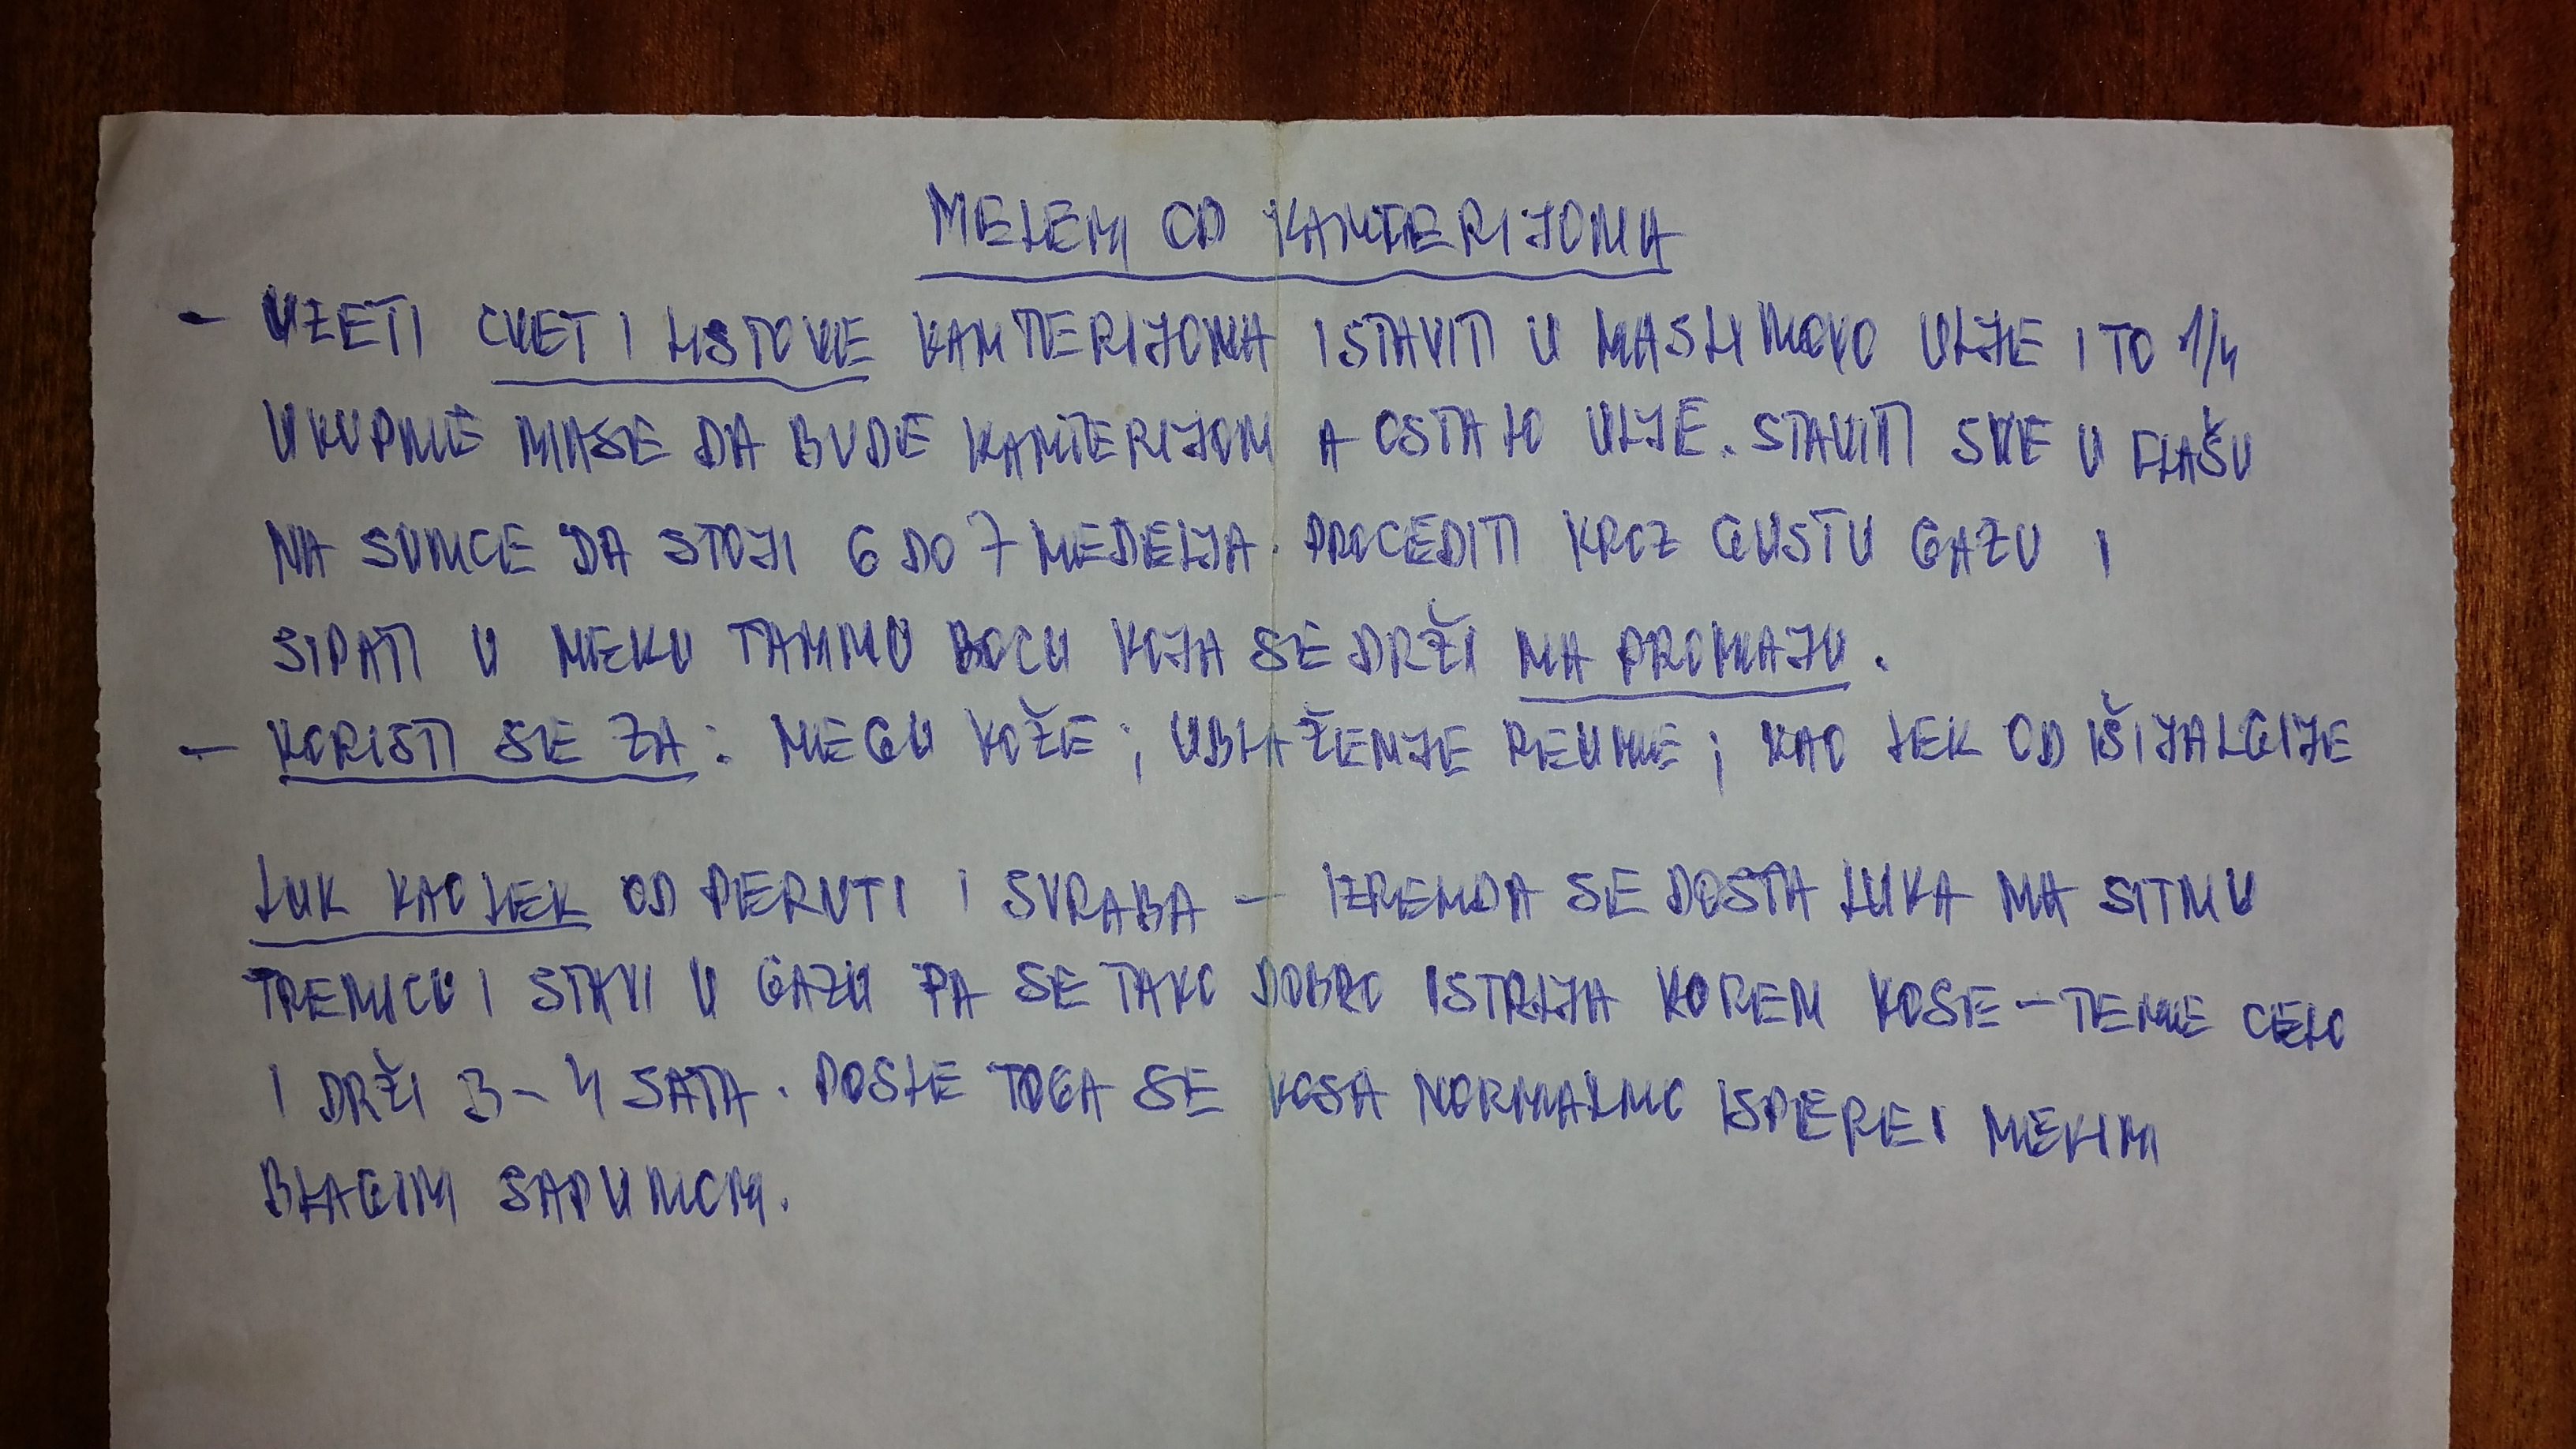 MELEM OD KANTERIJONA
- UZETI CVET I LISTOVE KANTERIJONA I STAVITI U MASLINOVO ULJE I TO 1/4
UKUPNE MASE DA BUDE KANTERIJON A OSTALO ULJE. STAVITI SVE U FLAŠU
NA SUNCE DA STOJI 6 DO 7 NEDELJA. PROCEDITI KROZ GUSTU GAZU I
SIPATI U NEKU TAMNO BOCU KOJA SE DRŽI NA PROMAJU.
- KORISTI SE ZA: NEGU KOŽE; UBLAŽENJE REUME; KAO ČAJ OD ISIJALGIJE
LUK KAO LEK OD PERUTI I SVRABA - IZRENDA SE DOSTA LUKA NA SITNU
RENDU I STAVI U GAZU PA SE TAKO DOBRO ISTRLJA KOREN KOSE - TEME CELO
I DRŽI 3-4 SATA. POSLE TOGA SE KOSA NORMALNO ISPERE I NEKIM
BLAGIM SAPUNOM.